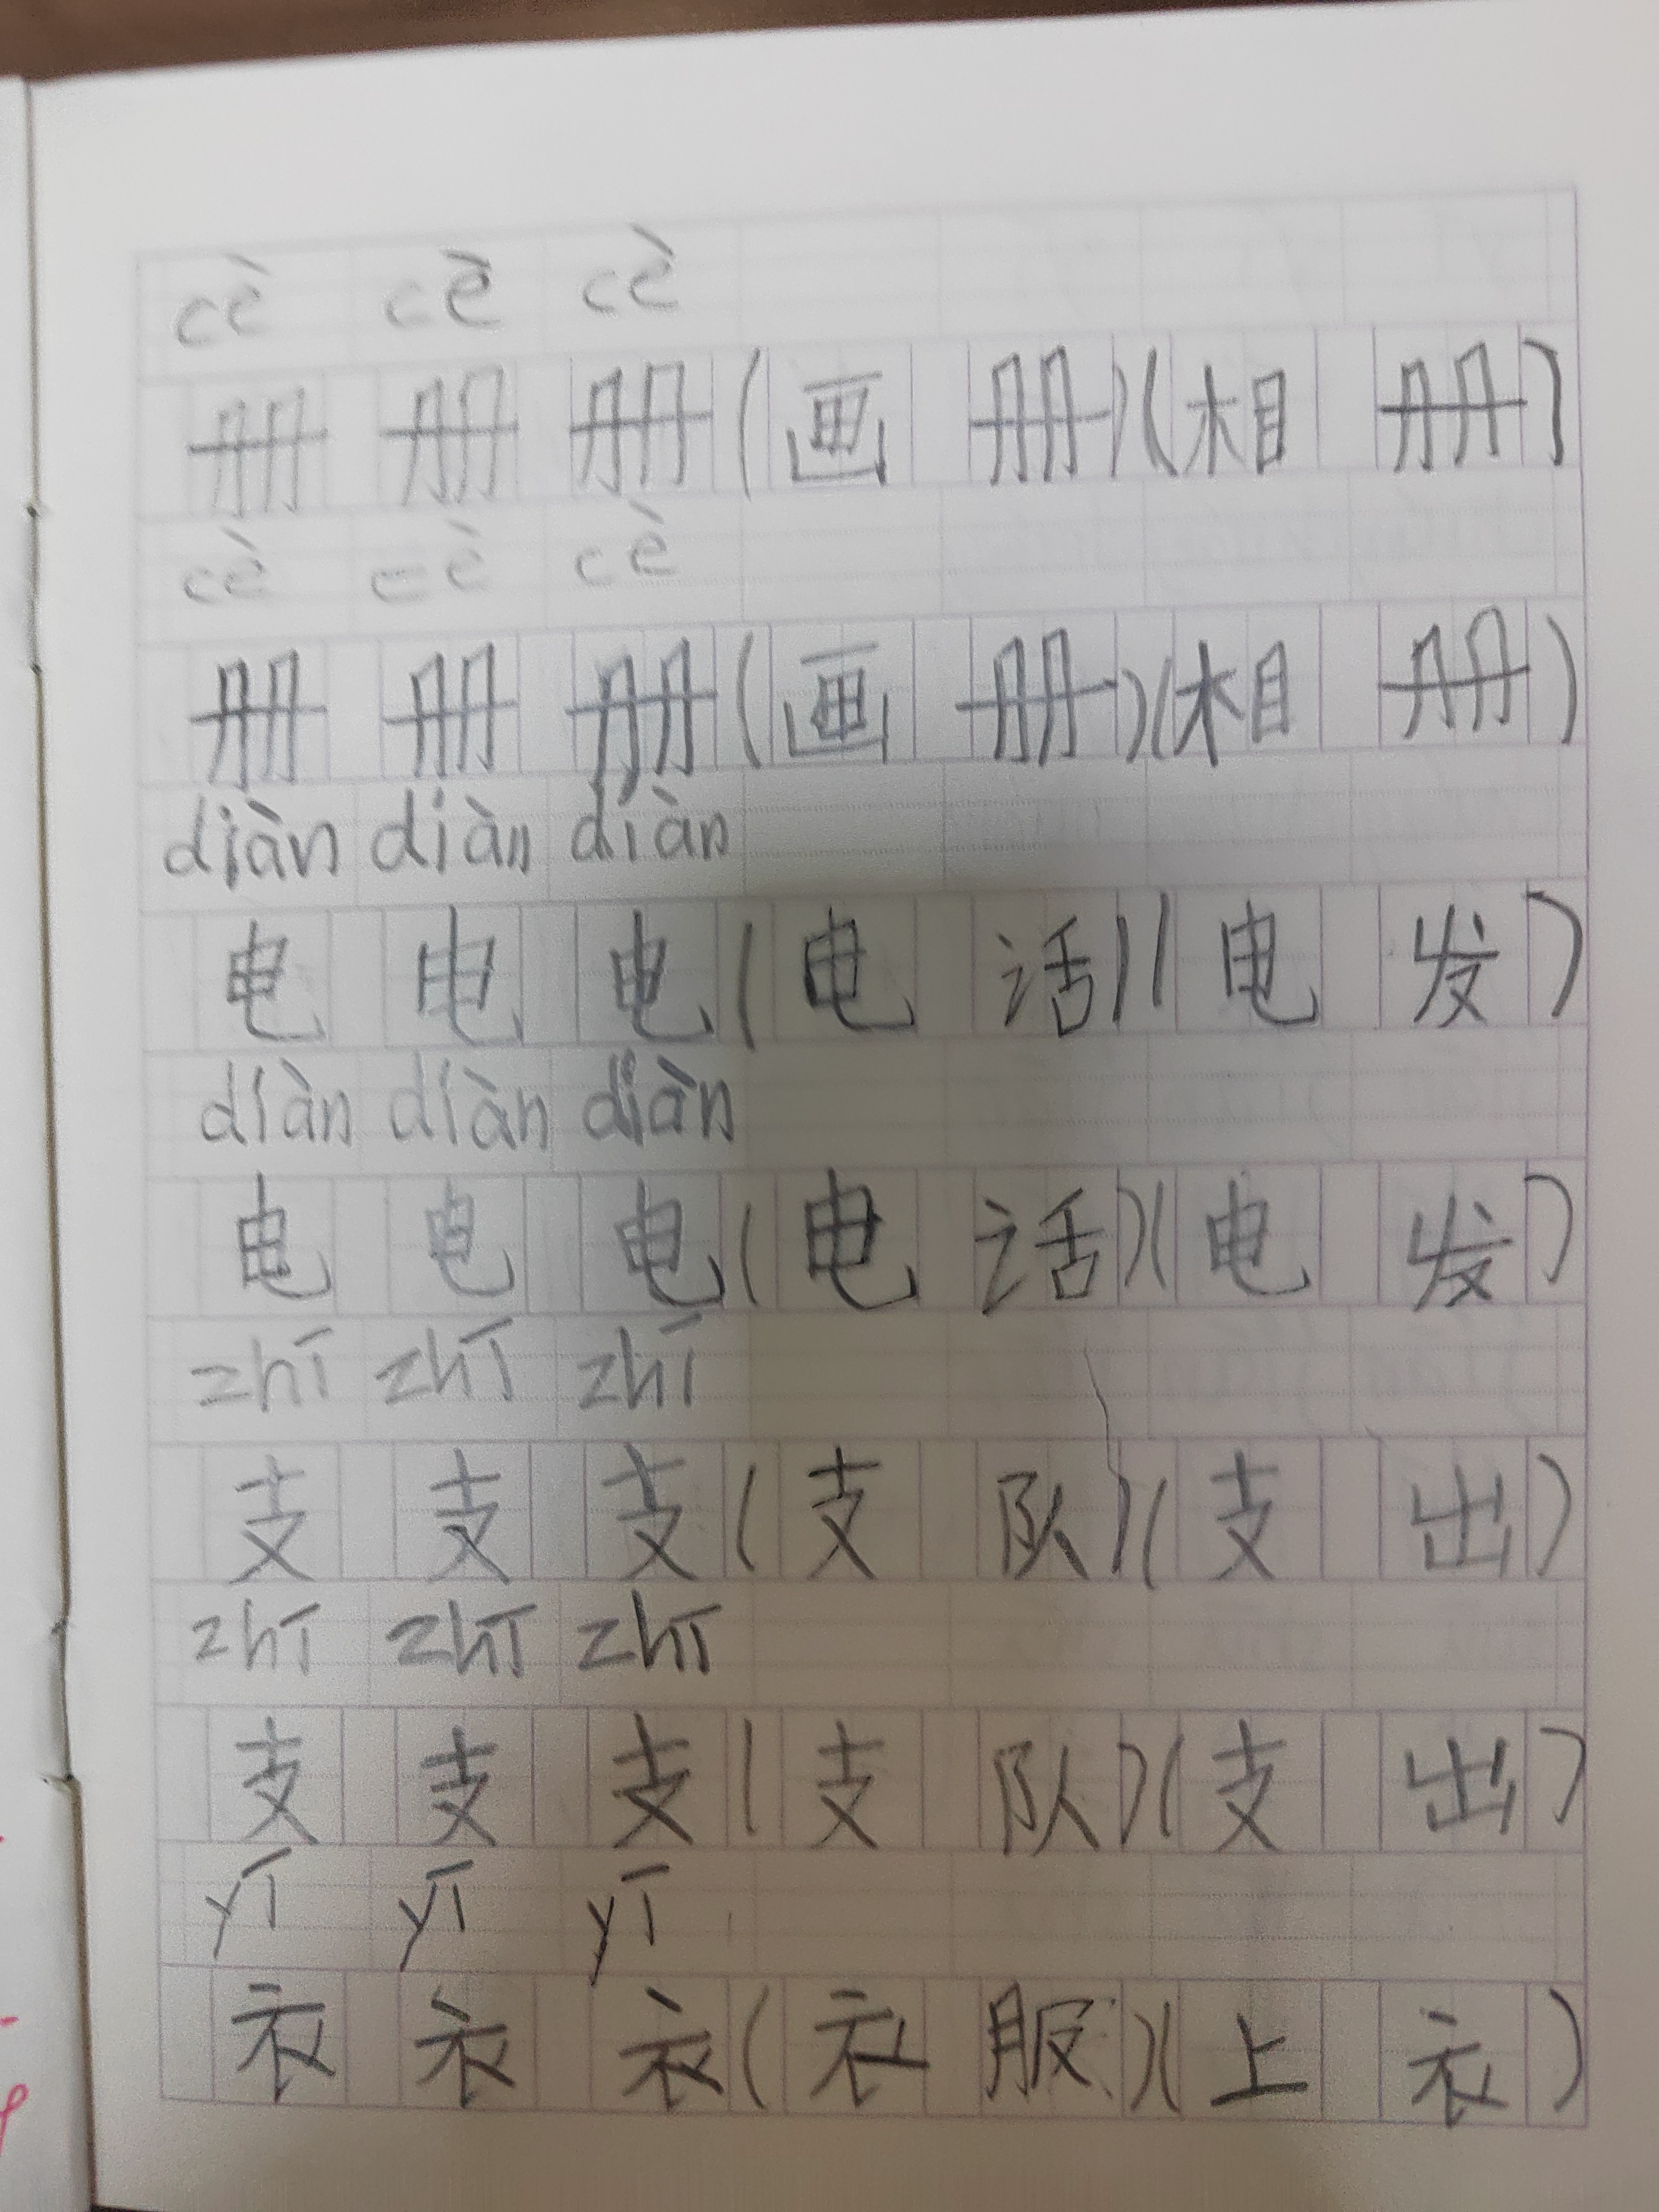 cè cè cè
册 册 册 (画 册)(相 册)
cè cè cè
册 册 册 (画 册)(相 册)
diàn diàn diàn
电 电 电 (电 话)(电 发)
diàn diàn diàn
电 电 电 (电 话)(电 发)
zhī zhī zhī
支 支 支 (支 队)(支 出)
zhī zhī zhī
支 支 支 (支 队)(支 出)
yī yī yī
衣 衣 衣 (衣 服)(上 衣)